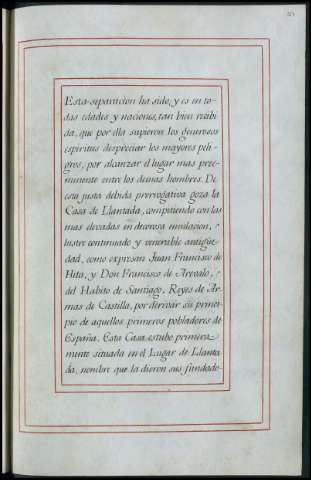 Esta separacion ha sido, y es en to-
das edades y naciones, tan bien recibi
da, que por ella supieron los generosos
espiritus despreciar los mayores peli-
gros, por alcanzar el lugar mas pree-
minente entre los demas hombres. De
esta justa debida prerrogativa goza la
Casa de Llantada, compitiendo con las
mas elevadas en decorosa emulacion,
lustre continuado y venerable antigüe
dad, como expresan Juan Francisco de
Hita, y Don Francisco de Arevalo,
del Habito de Santiago, Reyes de Ar-
mas de Castilla, por derivar su princi-
pio de aquellos primeros pobladores de
España. Esta Casa estubo primera
mente situada en el Lugar de Llanta
da, nombre que la dieron sus fundado-